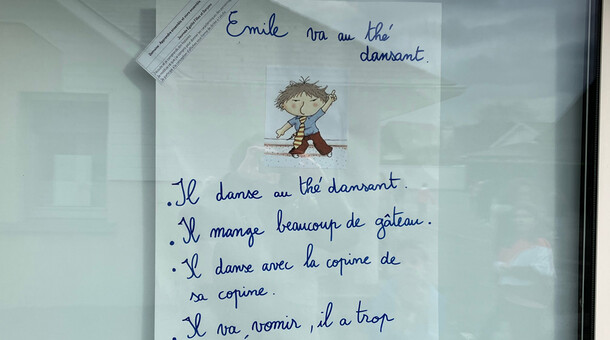 Emile va au thé
dansant.
• Il danse au thé dansant.
• Il mange beaucoup de gâteau.
• Il danse avec la copine de
sa copine.
• Il va vomir, il a trop